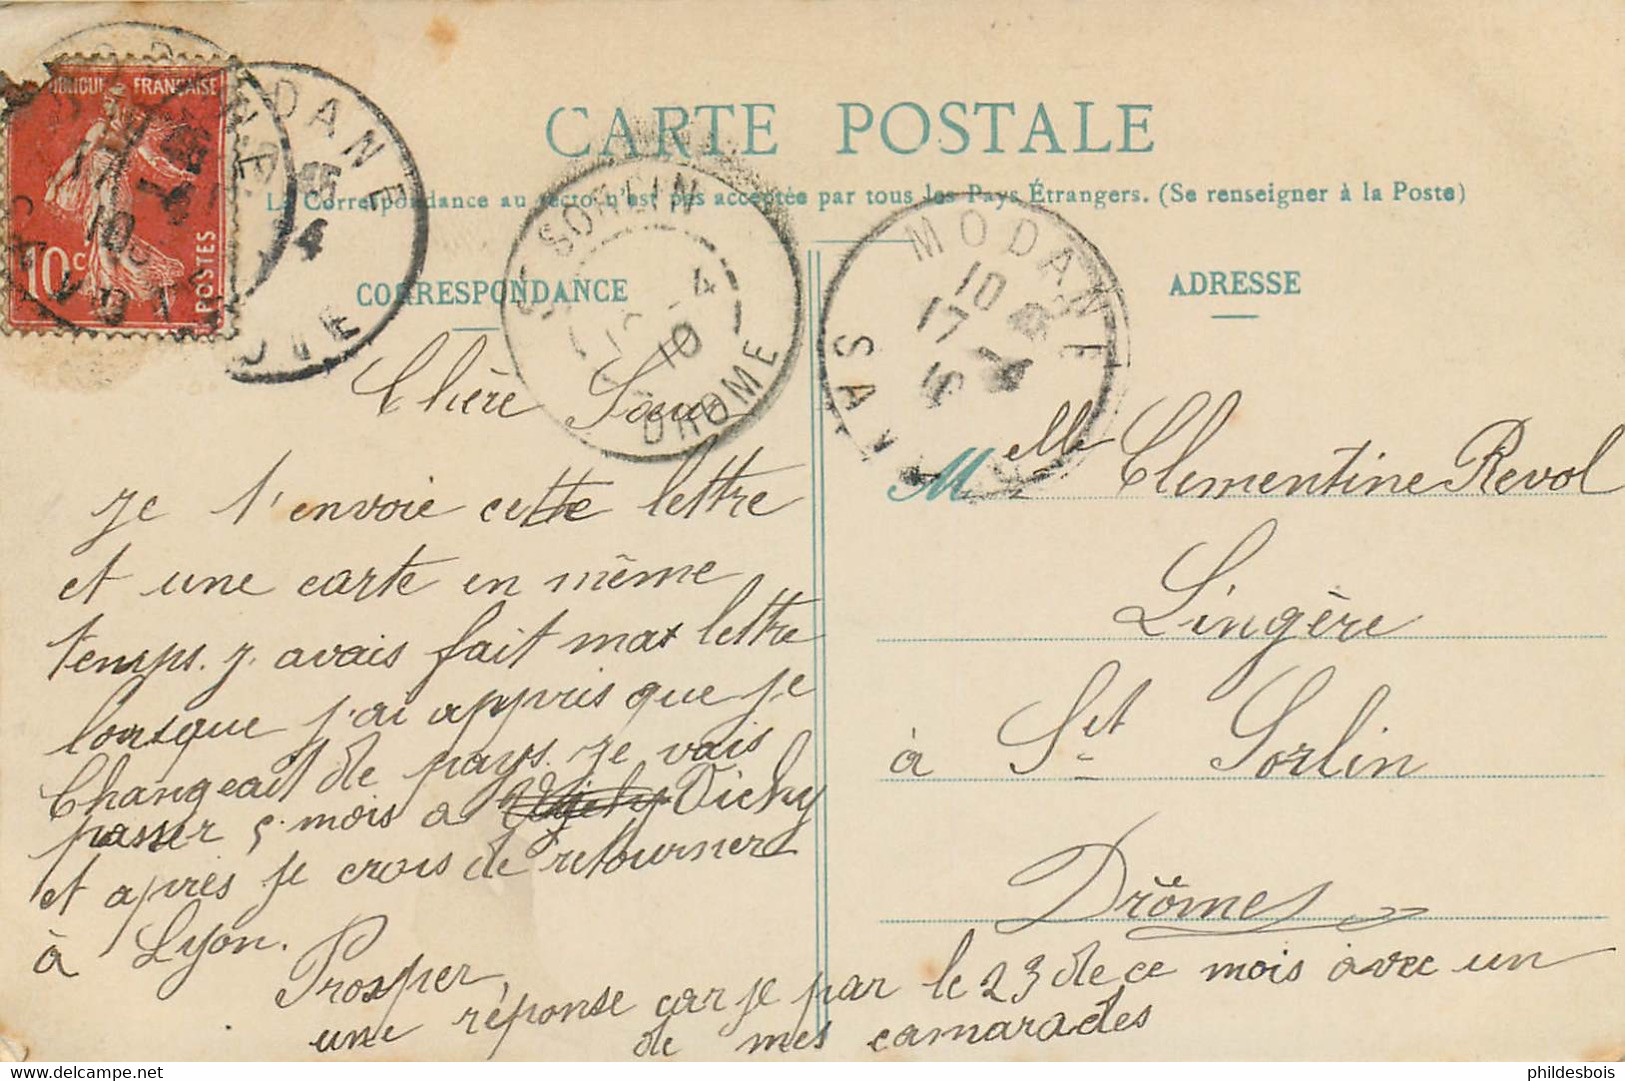 CARTE POSTALE
La Correspondance au recto n'est pas acceptée par tous les Pays Étrangers. (Se renseigner à la Poste)
RÉPUBLIQUE FRANÇAISE
10c
POSTES
MODANE
4
ST SORLIN
4
10
DRÔME
MODANE
10
17
4
SAV
CORRESPONDANCE
Chère Sœur
Je t'envoie cette lettre
et une carte en même
temps. j. avais fait ma lettre
lorsque j'ai appris que je
Changeait de pays. Je vais
passer 5. mois a Vichy
et après je crois de retourner
à Lyon.
Prosper
une réponse car je par le 23 de ce mois avec un
de mes camarades
ADRESSE
Melle Clementine Revol
Lingère
à St Sorlin
Drômes
philde­sbois